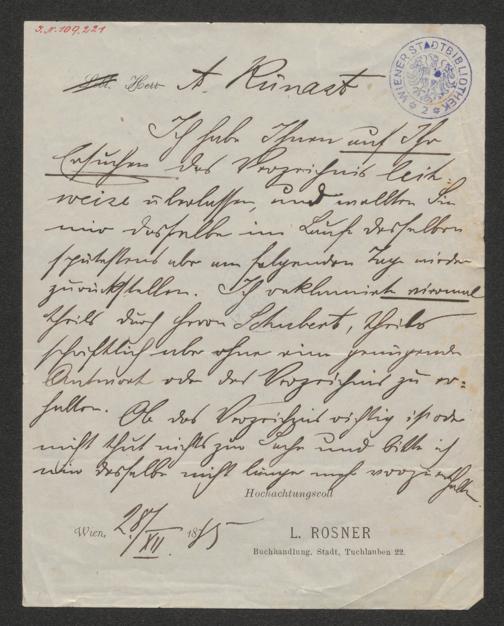 J.N. 109.221
WIENER STADTBIBLIOTHEK
2
Herr A. Künast
Ich habe Ihnen auf Ihr
Ersuchen das Verzeichnis leih-
weise überlassen, und wollten Sie
mir dasselbe im Laufe desselben
spätestens aber am folgenden Tag wieder
zurückstellen. Ich reklamirte viermal
theils durch Herrn Schubert, theils
schriftlich aber ohne eine genügende
Antwort oder das Verzeichnis zu er-
halten. Ob das Verzeichnis richtig ist oder
nicht thut nichts zur Sache und bitte ich
mir dasselbe nicht länger mehr vorzuenthalten.
Hochachtungsvoll
Wien, 28/XII. 1875
L. ROSNER
Buchhandlung, Stadt, Tuchlauben 22.